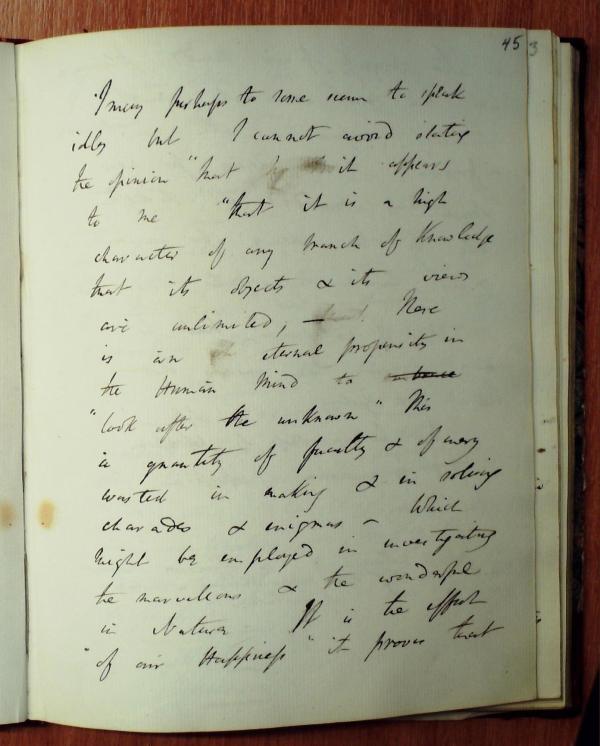 45 3
"I may perhaps to some seem to speak
idly but I cannot avoid stating
the opinion "that it appears
to me "that it is a high
character of any branch of Knowledge
that its objects & its views
are unlimited, — There
is an eternal propensity in
the Human Mind to embrace
"look after the unknown" This
a quantity of faculty & of
wasted in making & in solving
charades & enigmas – Which
might be employed in investigating
the marvellous & the wonderful
in Nature It is the effect
"of our Happiness" it proves that